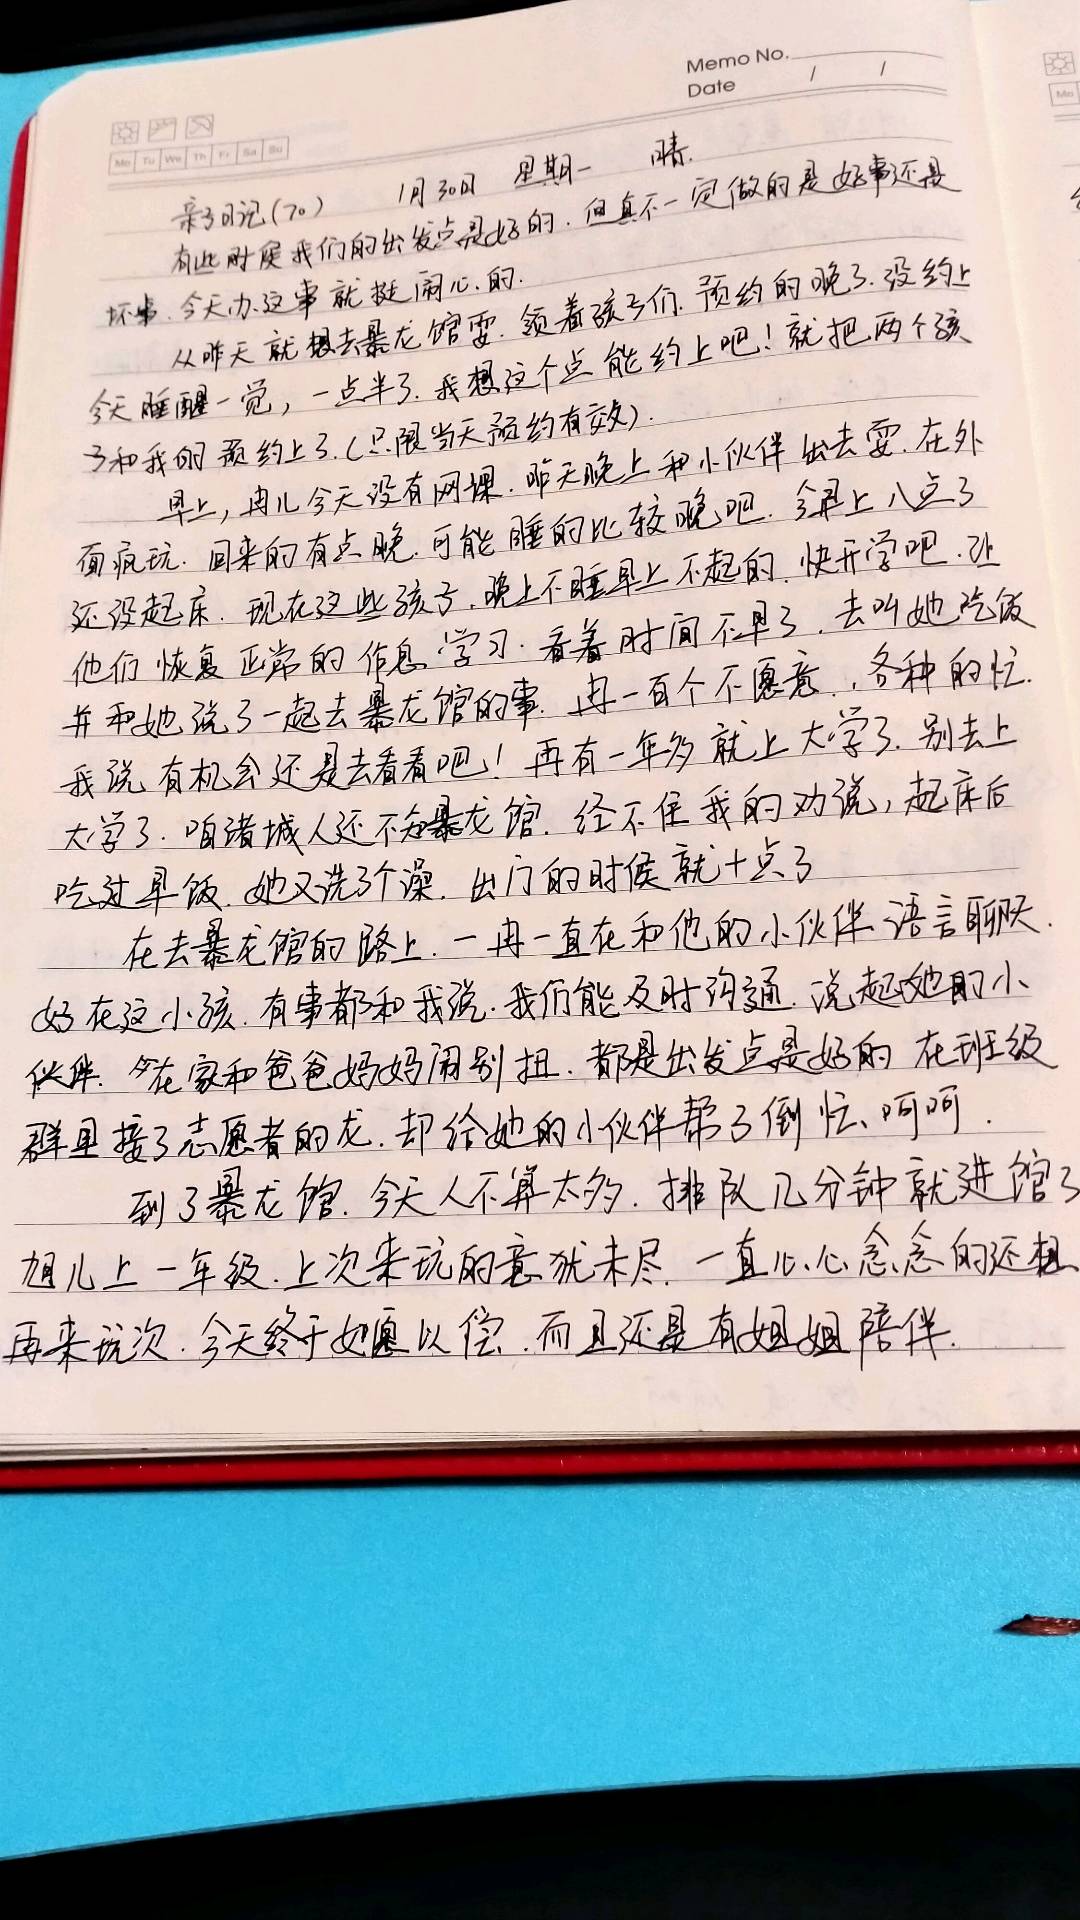 Memo No.
Date / /
Mo Tu We Th Fr Sa Su
亲子日记(70) 1月30日 星期一 晴.
有些时候我们的出发点是好的.但真不一定做的是好事还是
坏事.今天办这事就挺闹心的.
从昨天就想去暴龙馆耍.领着孩子们.预约的晚了.没约上
今天睡醒一觉,一点半了.我想这个点能约上吧!就把两个孩
子和我的预约上了.(只限当天预约有效).
早上,冉儿今天没有网课.昨天晚上和小伙伴出去耍.在外
面疯玩.回来的有点晚.可能睡的比较晚吧.今早上八点了
还没起床.现在这些孩子.晚上不睡早上不起的.快开学吧.让
他们恢复正常的作息学习.看着时间不早了.去叫她吃饭
并和她说了一起去暴龙馆的事.冉一百个不愿意.,各种的忙.
我说有机会还是去看看吧!再有一年多就上大学了.别去上
大学了.咱诸城人还不知暴龙馆.经不住我的劝说,起床后
吃过早饭.她又洗了个澡.出门的时候就十点了
在去暴龙馆的路上.一冉一直在和他的小伙伴语言聊天.
好在这小孩.有事都和我说.我们能及时沟通.说起她的小
伙伴.在家和爸爸妈妈闹别扭.都是出发点是好的 在班级
群里接了志愿者的龙.却给她的小伙伴帮了倒忙、呵呵.
到了暴龙馆.今天人不算太多.排队几分钟就进馆了
旭儿上一年级.上次来玩的意犹未尽.一直心心念念的还想
再来玩次.今天终于如愿以偿.而且还是有姐姐陪伴.
Mo